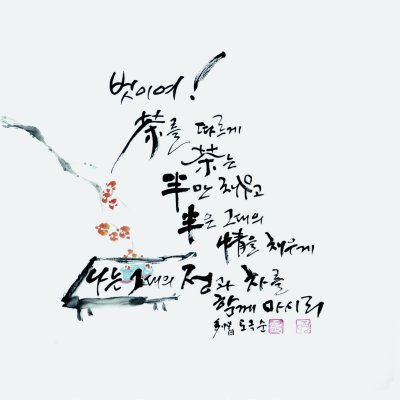 벗이여!
茶를 따르게
茶는
半만 채우고
半은 그대의
情을 채우게
나는 그대의 정과 차를
함께 마시리
도옥순